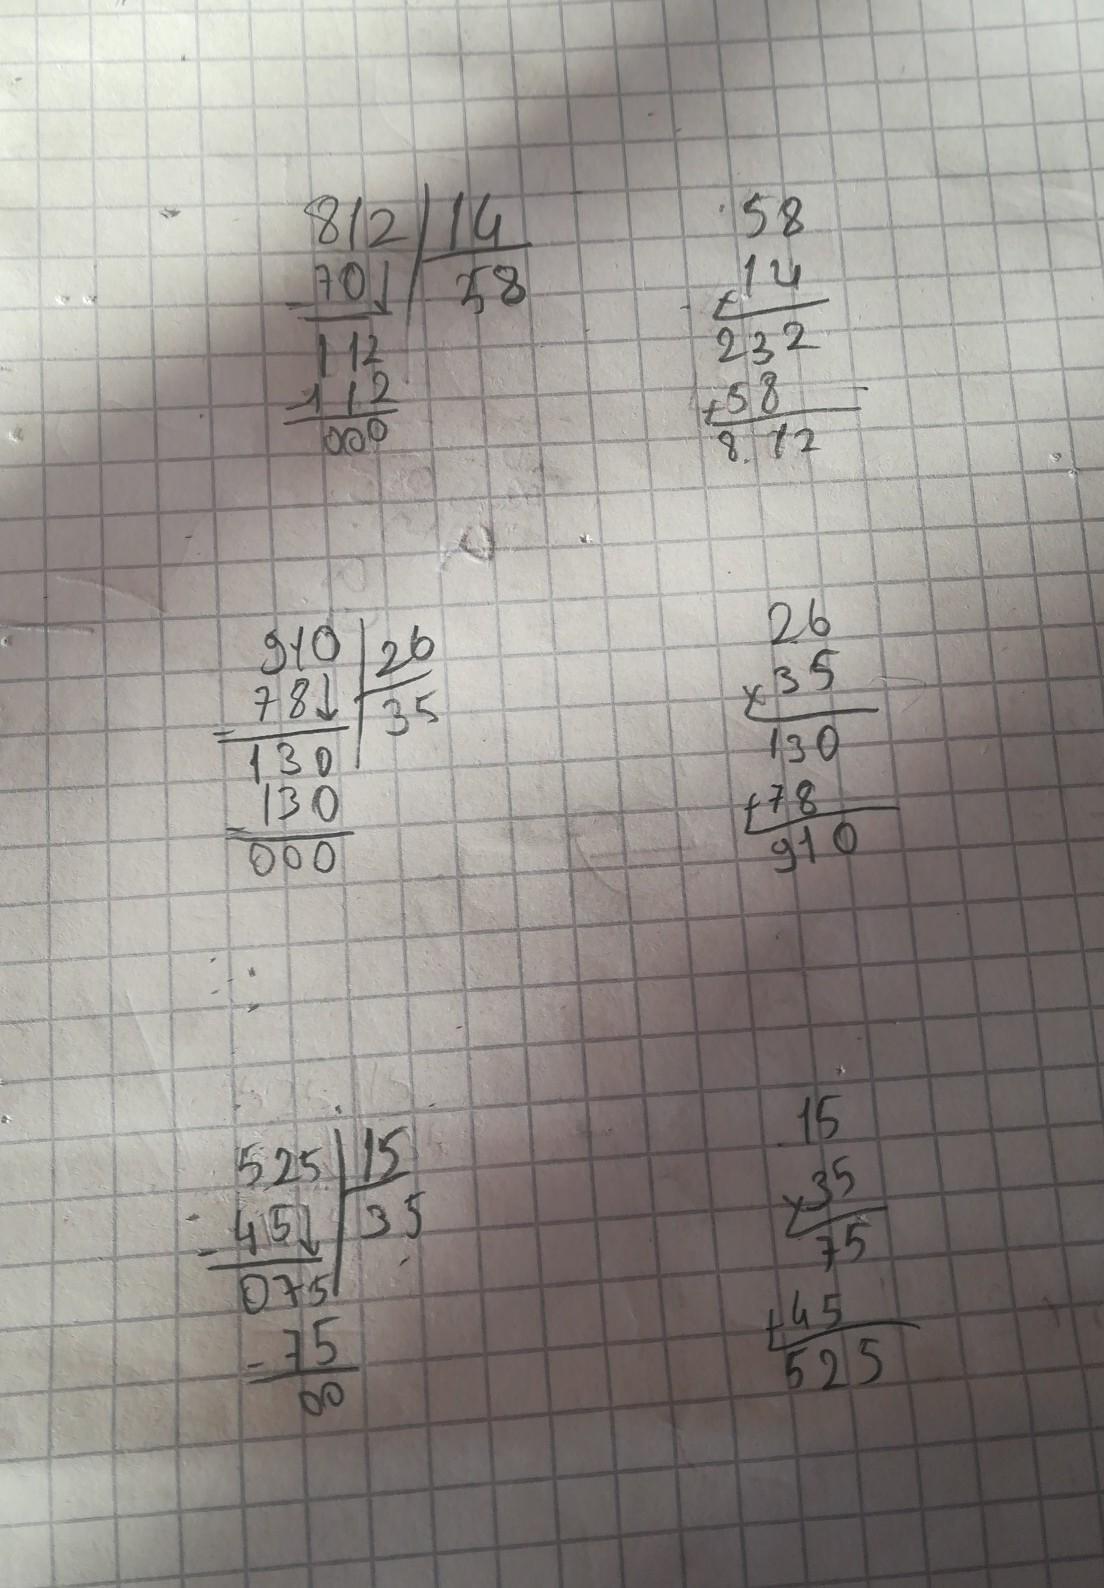 812 | 14
- 70↓ 58
112
- 112
000
58
x 14
232
+ 58
8.12
910 | 26
- 78↓ 35
130
- 130
000
26
x 35
130
+ 78
910
525 | 15
- 45↓ 35
075
- 75
00
15
x 35
75
+ 45
525